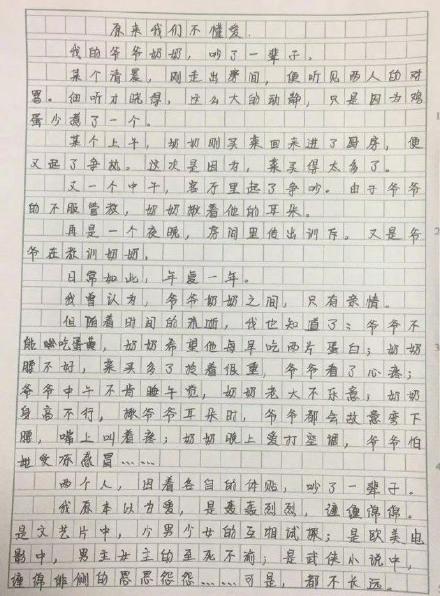 原来我们不懂爱
我的爷爷奶奶，吵了一辈子。
某个清晨，刚走出房间，便听见两人的对
骂。细听才晓得，这么大的动静，只是因为鸡
蛋少煮了一个。
某个上午，奶奶刚买菜回来进了厨房，便
又起了争执。这次是因为，菜买得太多了。
又一个中午，客厅里起了争吵。由于爷爷
的不服管教，奶奶揪着他的耳朵。
再是一个夜晚，房间里传出训斥。又是爷
爷在教训奶奶。
日常如此，年复一年。
我曾认为，爷爷奶奶之间，只有亲情。
但随着时间的流逝，我也知道了：爷爷不
能吃蛋黄，奶奶希望他每早吃两片蛋白；奶奶
腰不好，菜买多了拎着很重，爷爷看了心疼；
爷爷中午不肯睡午觉，奶奶老大不乐意，奶奶
身高不行，揪爷爷耳朵时，爷爷都会故意弯下
腰，嘴上叫着疼；奶奶晚上爱打空调，爷爷怕
她受凉感冒……
两个人，因着各自的体贴，吵了一辈子。
我原本以为爱，是轰轰烈烈，缠缠绵绵。
是文艺片中，少男少女的互相试探；是欧美电
影中，男主女主的至死不渝；是武侠小说中，
缠绵悱恻的恩恩怨怨……可是，都不长远。